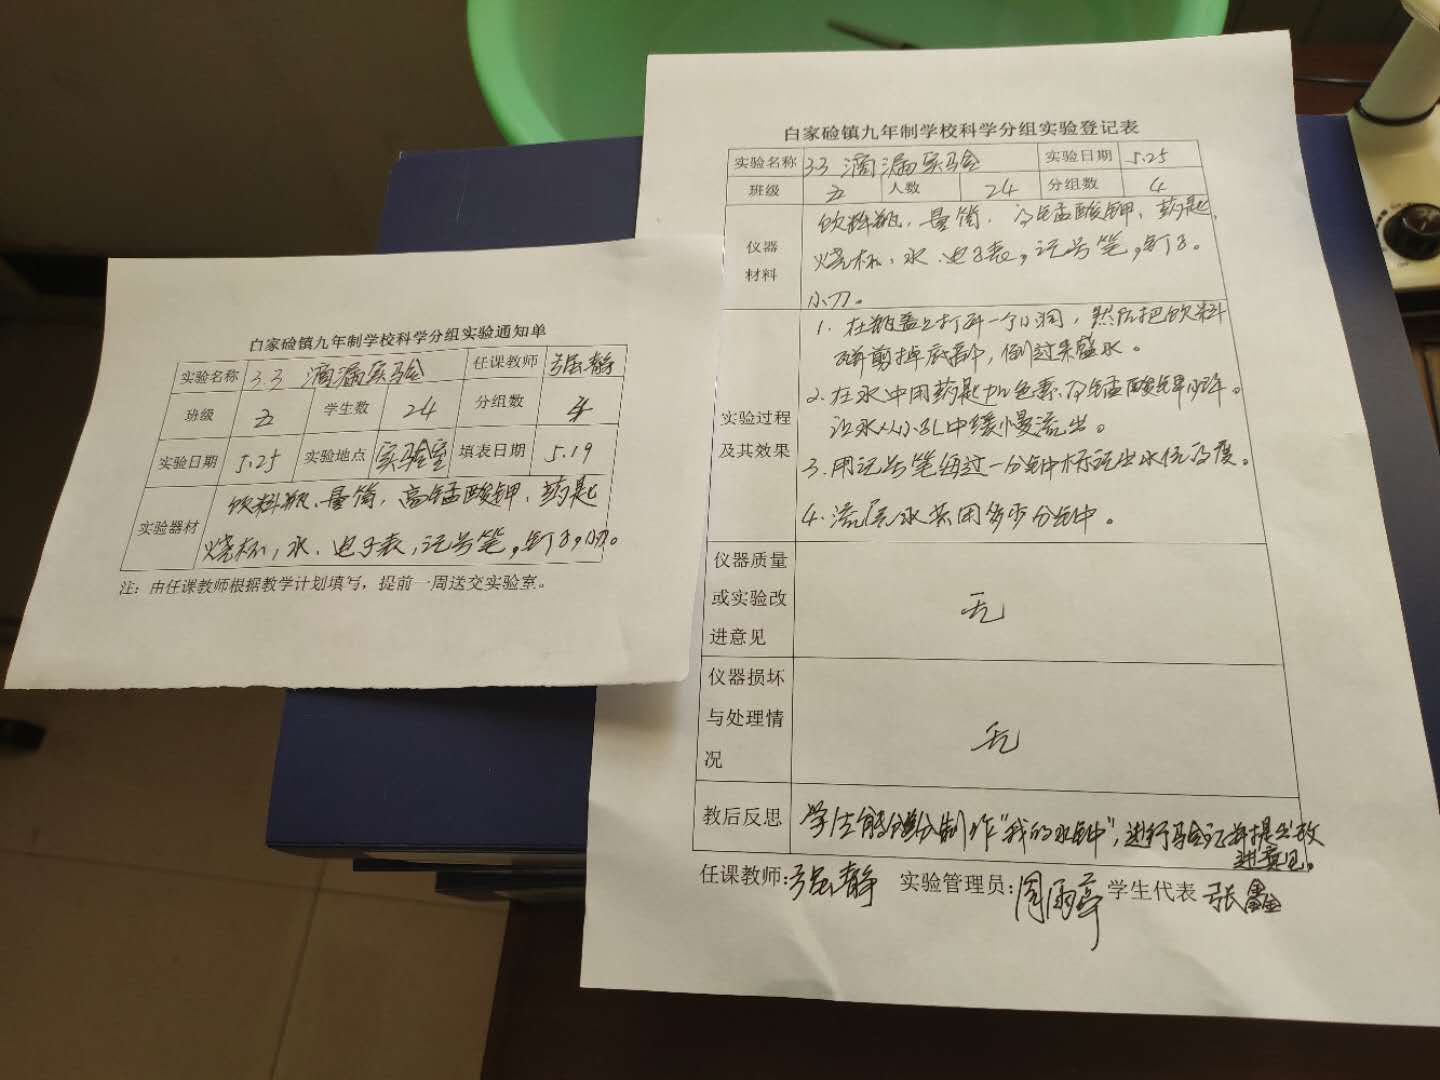 白家硷镇九年制学校科学分组实验通知单
实验名称 3.3 滴漏实验 任课教师 强静
班级 五 学生数 24 分组数 4
实验日期 5.25 实验地点 实验室 填表日期 5.19
实验器材 饮料瓶、量筒，高锰酸钾、药匙
烧杯，水、电子表，记号笔，钉子，小刀。
注：由任课教师根据教学计划填写，提前一周送交实验室。
白家硷镇九年制学校科学分组实验登记表
实验名称 3.3 滴漏实验 实验日期 5.25
班级 五 人数 24 分组数 4
仪器材料
饮料瓶，量筒，高锰酸钾、药匙，
烧杯、水、电子表，记号笔，钉子。
小刀。
实验过程及其效果
1. 在瓶盖上打开一个小洞，然后把饮料
瓶剪掉底部，倒过来盛水。
2. 在水中用药匙加色素高锰酸钾
让水从小孔中缓慢流出。
3. 用记号笔每过一分钟标记出水位高度。
4. 流完水共用多少分钟。
仪器质量或实验改进意见
无
仪器损坏与处理情况
无
教后反思
学生能制作“我的水钟”，进行验证并提出改
进意见。
任课教师：强静 实验管理员：周雨 学生代表 张鑫